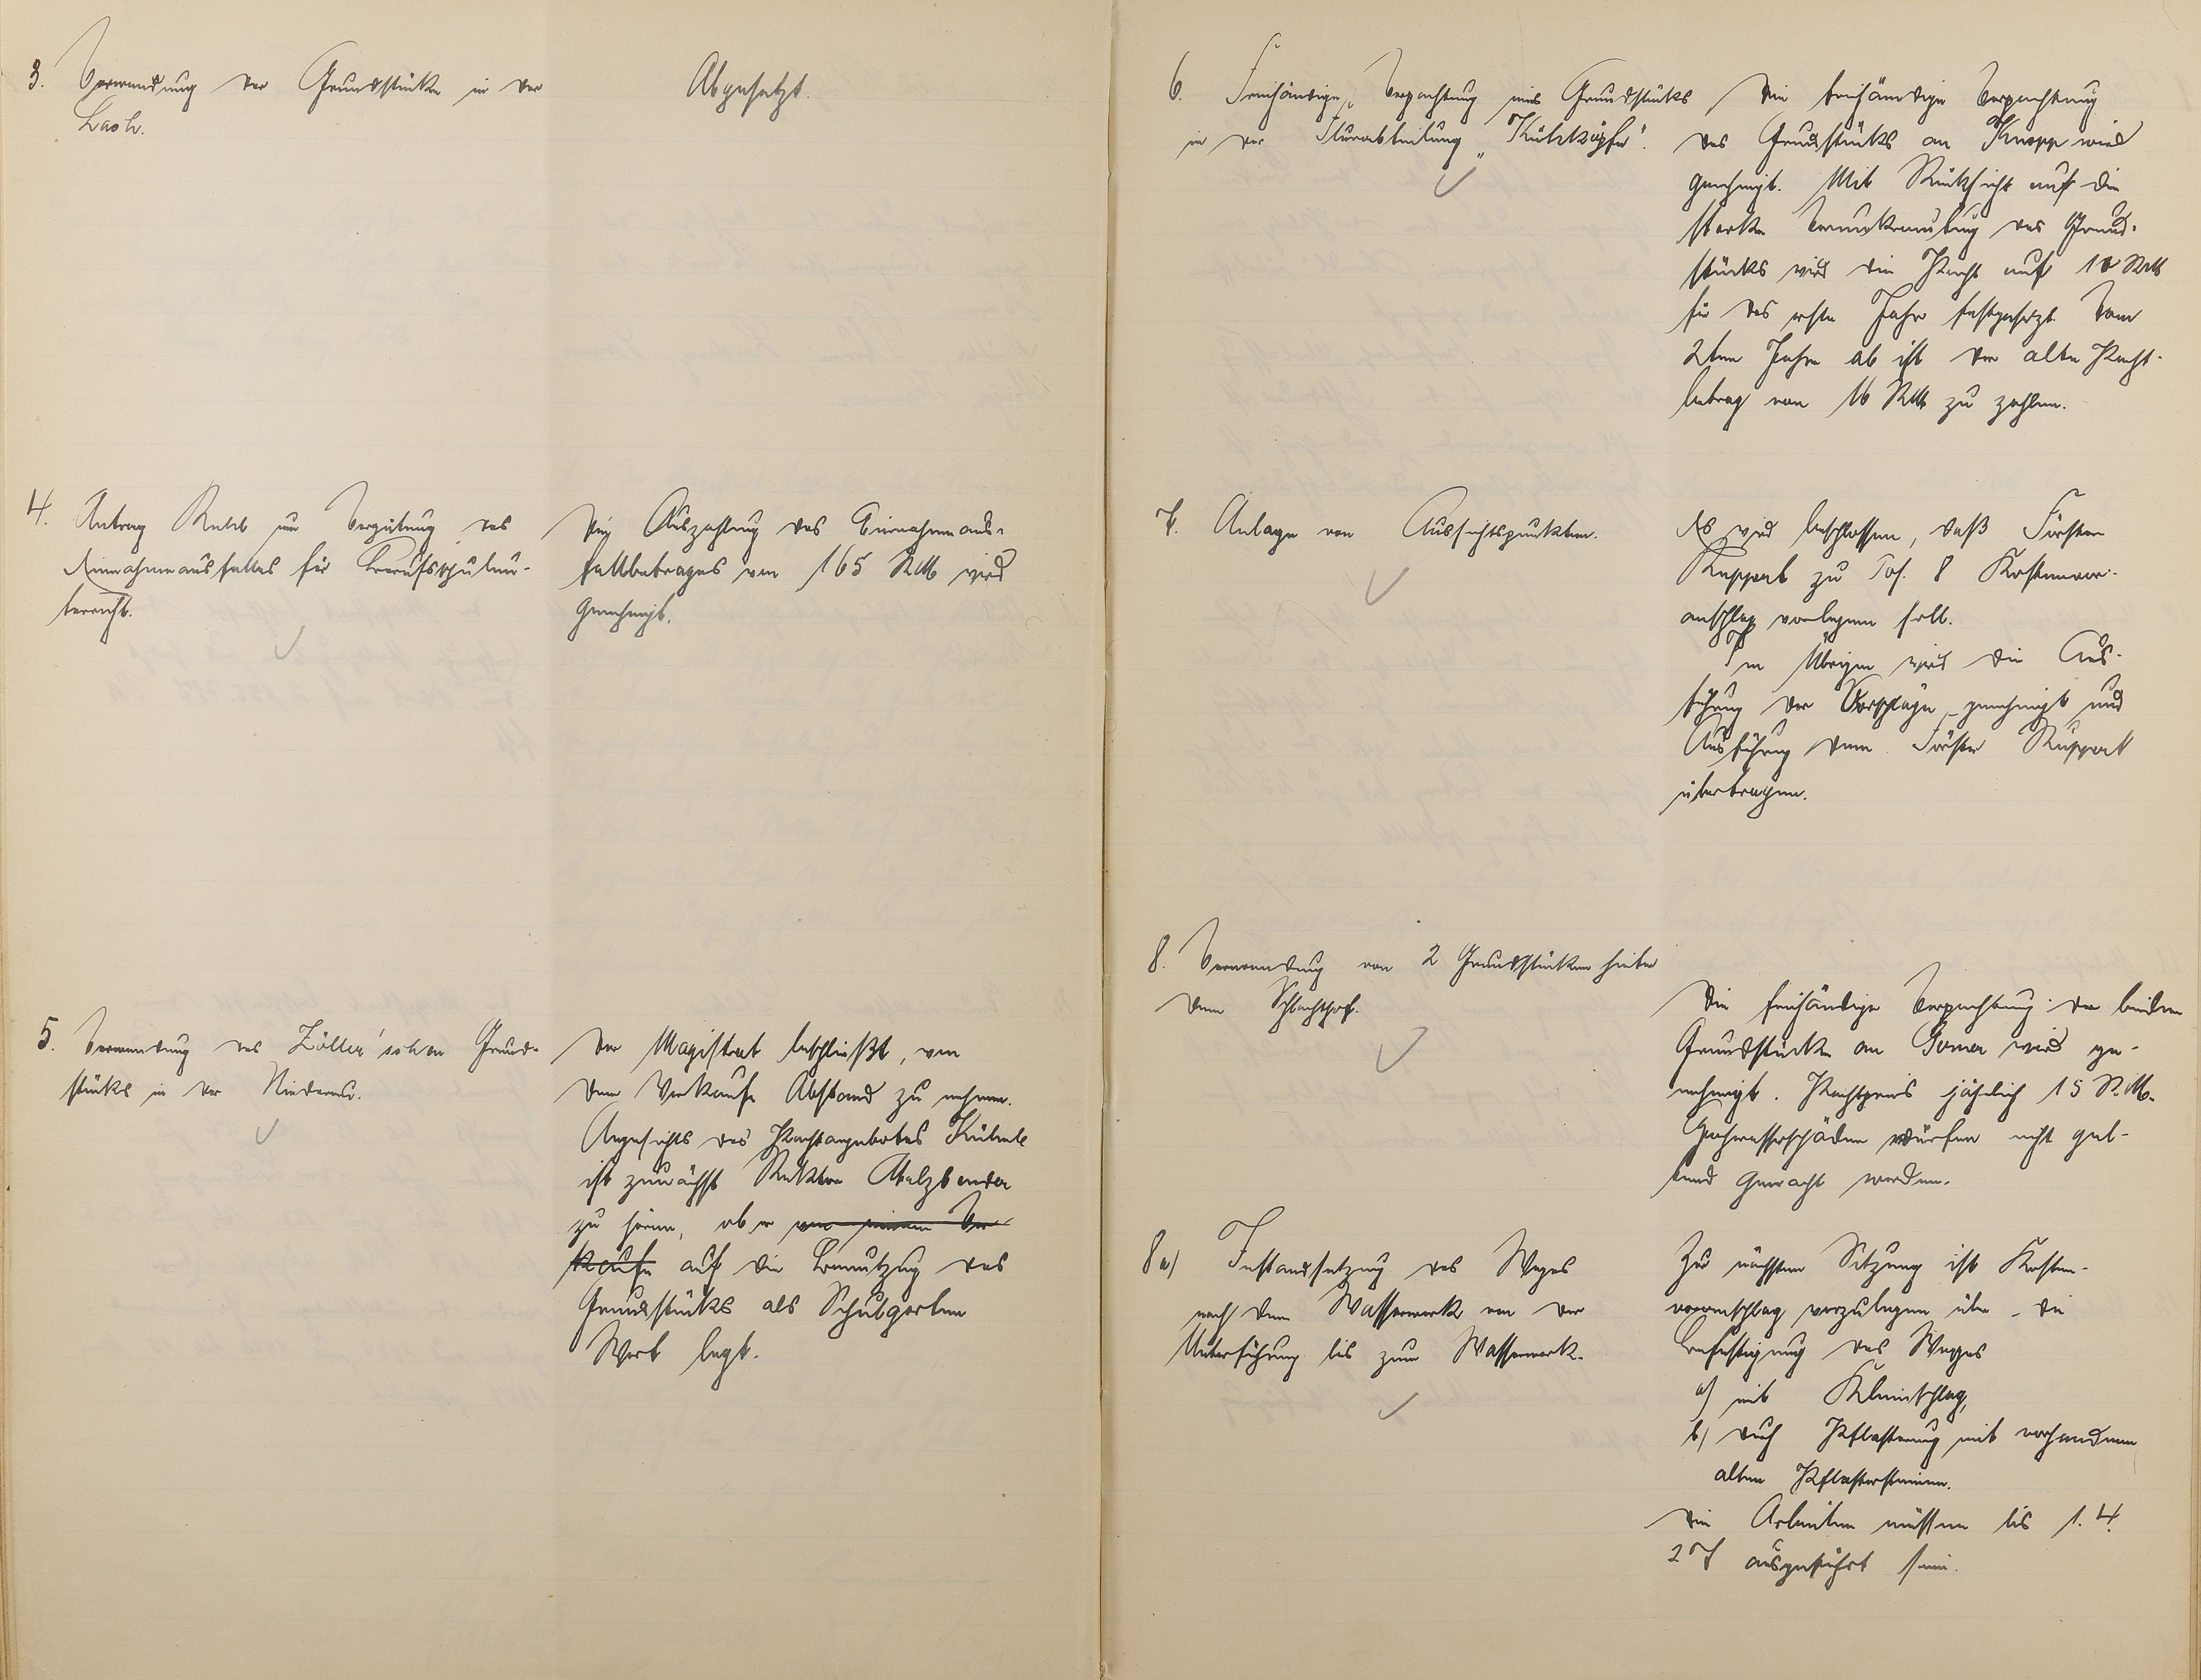 3. Verwendung der Grundstücke in der
Lach.
Abgesetzt.
4. Antrag um Vergütung des
Einnahmeausfalles für Berufsschulun-
terricht.
Die Auszahlung des Einnahmeaus-
fallbetrages von 165 RM wird
genehmigt.
5. Verwendung des Zöller'schen Grund-
stücks in der Niederau.
Der Magistrat beschließt, von
dem Verkaufe Abstand zu nehmen.
Angesichts des Pachtangebotes
ist zunächst Rektor Malzbender
zu hören, ob er von einem Ver-
kaufe auf die Benutzung des
Grundstücks als Schulgarten
Wert legt.
6. Freihändige Verpachtung eines Grundstücks
in der Flurabteilung „Kühköpfe".
Die freihändige Verpachtung
des Grundstücks an Knopp wird
genehmigt. Mit Rücksicht auf die
starke Verunkrautung des Grund-
stücks wird die Pacht auf 10 RM
für das erste Jahr festgesetzt. Vom
2ten Jahre ab ist der alte Pacht-
betrag von 16 RM zu zahlen.
7. Anlage von Aussichtspunkten.
Es wird beschlossen, daß Förster
Ruppert zu Pos. 8 Kostenvor-
anschlag vorlegen soll.
Im Übrigen wird die Aus-
führung der Vorschläge genehmigt und
Ausführung dem Förster Ruppert
übertragen.
8. Verwendung von 2 Grundstücken hinter
dem Schlachthof.
Die freihändige Verpachtung der beiden
Grundstücke an wird ge-
nehmigt. Pachtpreis jährlich 15 R.M.
Hochwasserschäden dürfen nicht gel-
tend gemacht werden.
8a) Instandsetzung des Weges
nach dem Wasserwerk von der
Unterführung bis zum Wasserwerk.
Zur nächsten Sitzung ist Kosten-
voranschlag vorzulegen über die
Befestigung des Weges
a) mit Kleinschlag,
b) durch Pflasterung mit vorhandenen
alten Pflastersteinen.
Die Arbeiten müssen bis 1.4.
27 ausgeführt sein.